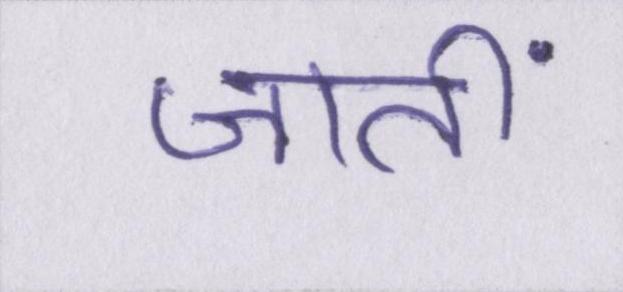 जातीं